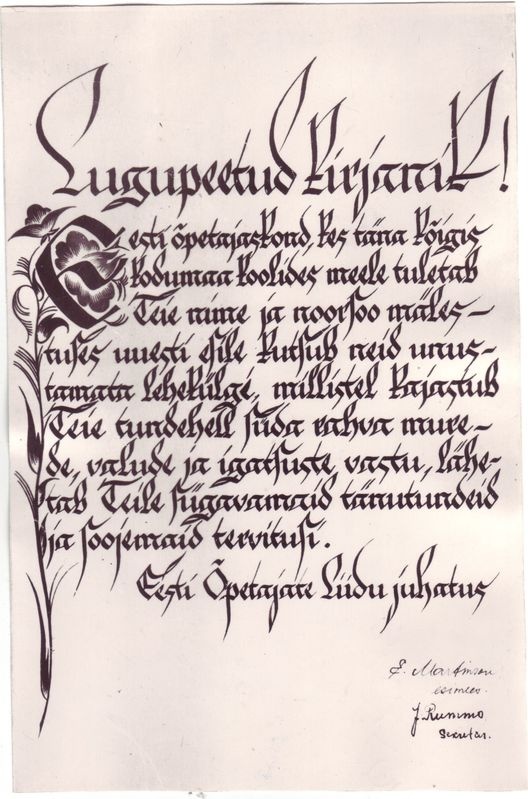 Lugupeetud kirjanik!
Eesti õpetajaskond, kes täna kõigis
kodumaa koolides, meele tuletab
Teie nime ja noorsoo mäles-
tuses uuesti esile kutsub neid unus-
tamata lehekülgi, millistel kajastub
Teie tundehell süda rahva mure-
de, valude ja igatsuste vastu, lähe-
tab Teile sügavamaid tänutundeid
ja soojemaid tervitusi.
Eesti Õpetajate Liidu juhatus
E. Martinson
esimees.
J. Rummo
Sekretär.